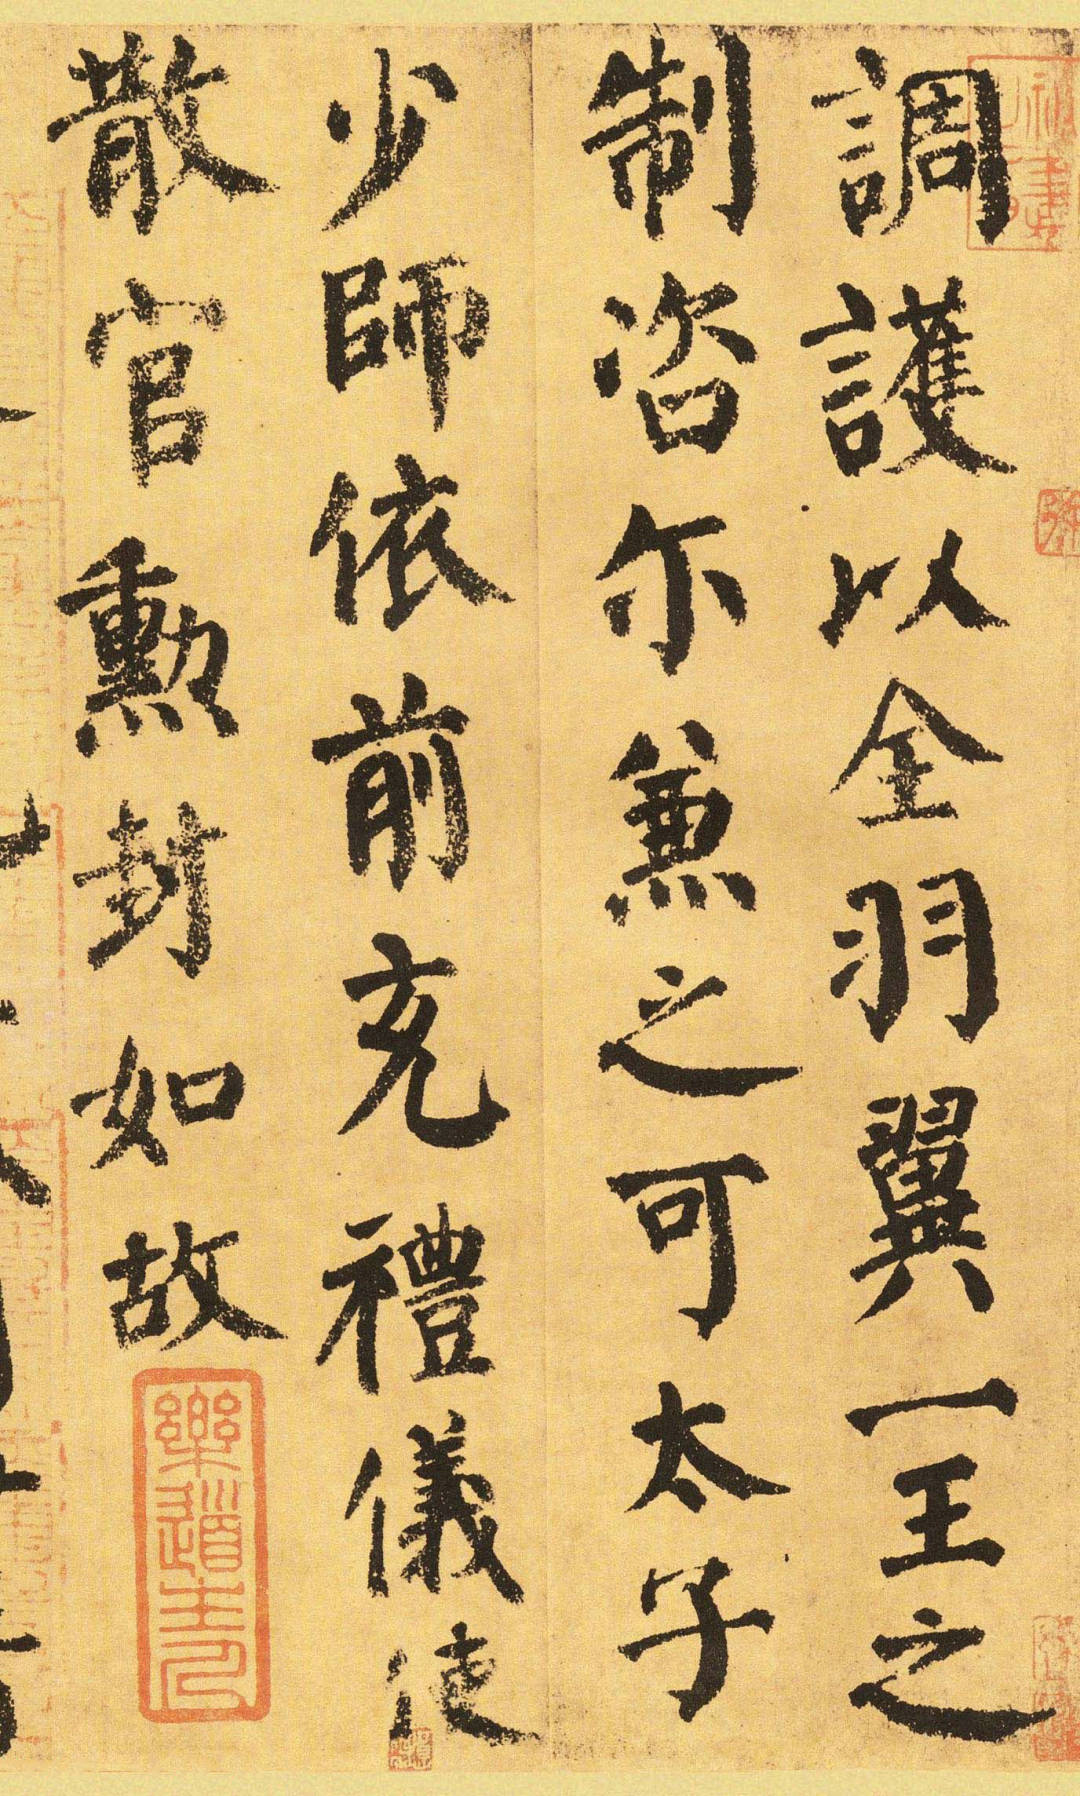 調護以全羽翼一王之
制咨尔兼之可太子
少師依前充禮儀使
散官勳封如故